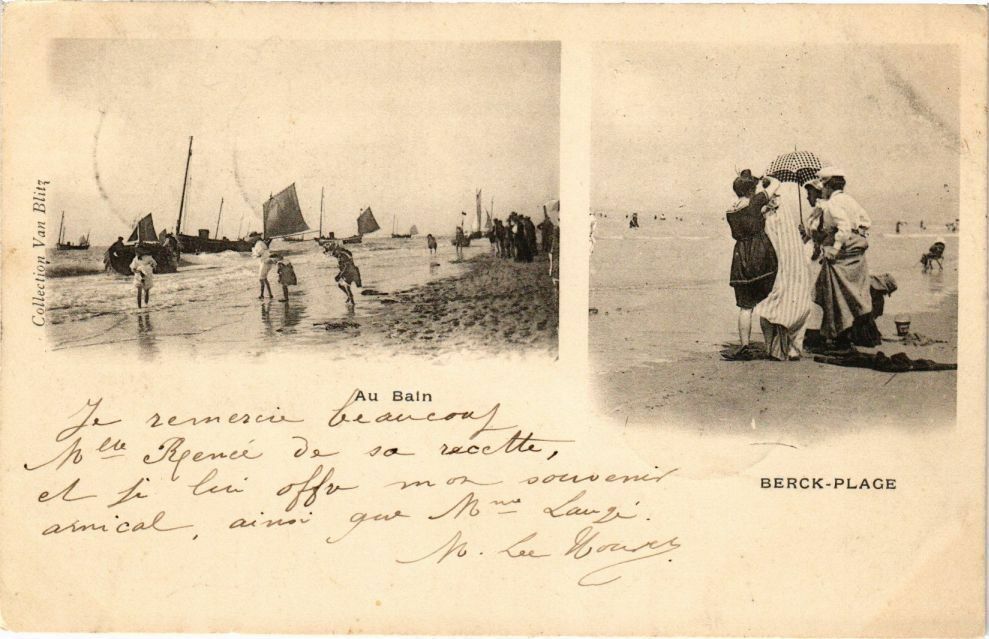 Collection Van Blitz
Au Bain
BERCK-PLAGE
Je remercie beaucoup
Mlle Renée de sa recette,
et je lui offre mon souvenir
amical, ainsi que Mme
M. Le